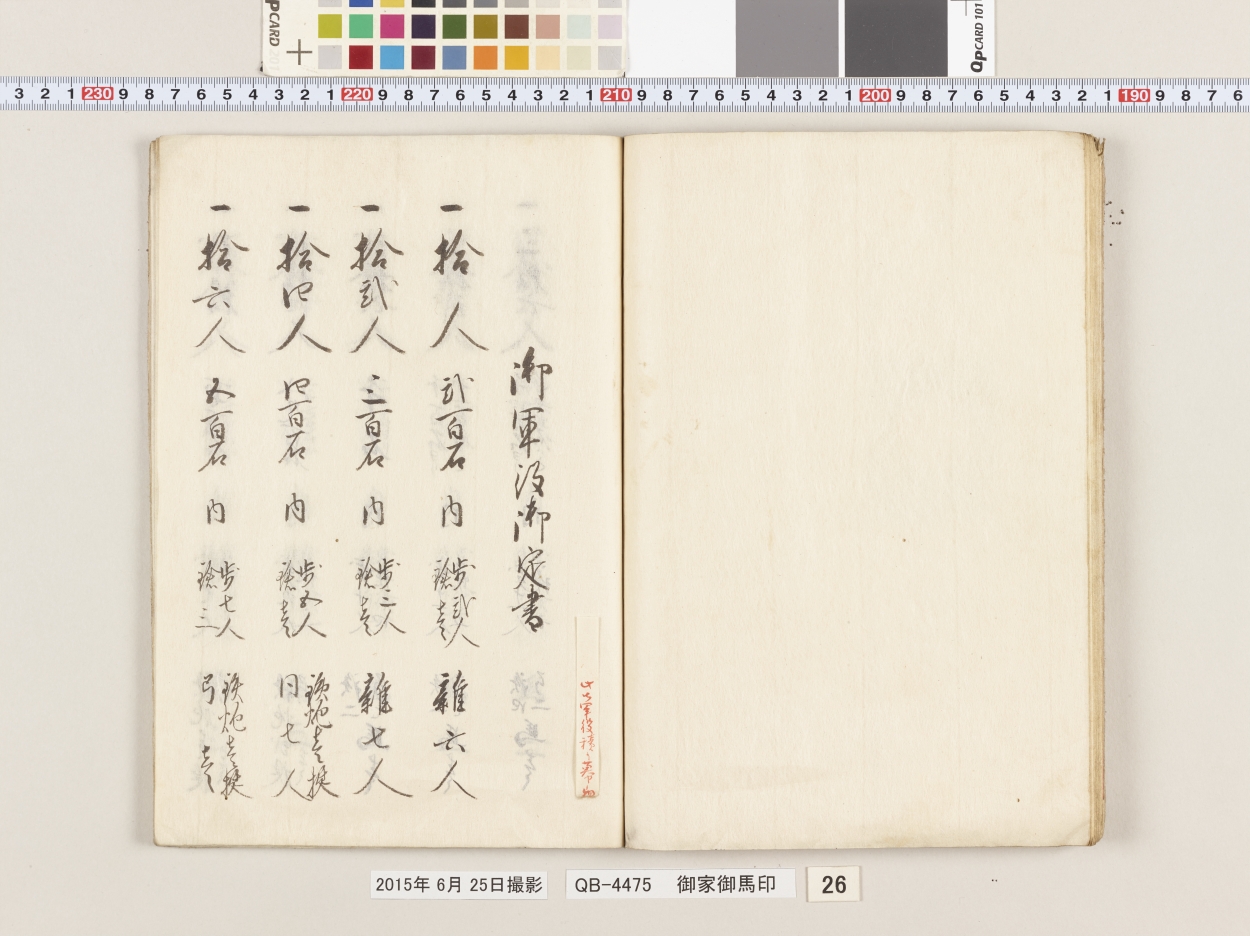 QPCARD 201
QPCARD 101
3 2 1 230 9 8 7 6 5 4 3 2 1 220 9 8 7 6 5 4 3 2 1 210 9 8 7 6 5 4 3 2 1 200 9 8 7 6 5 4 3 2 1 190 9 8 7 6
御軍役御定書
一拾人 弐百石 内 歩弐人 鑓壱 雑六人
一拾弐人 三百石 内 歩三人 鑓壱 雑七人
一拾四人 四百石 内 歩五人 鑓壱 鉄炮壱挺 同七人
一拾六人 五百石 内 歩七人 鑓三 鉄炮壱挺 弓壱
2015年 6月 25日撮影
QB-4475 御家御馬印
26